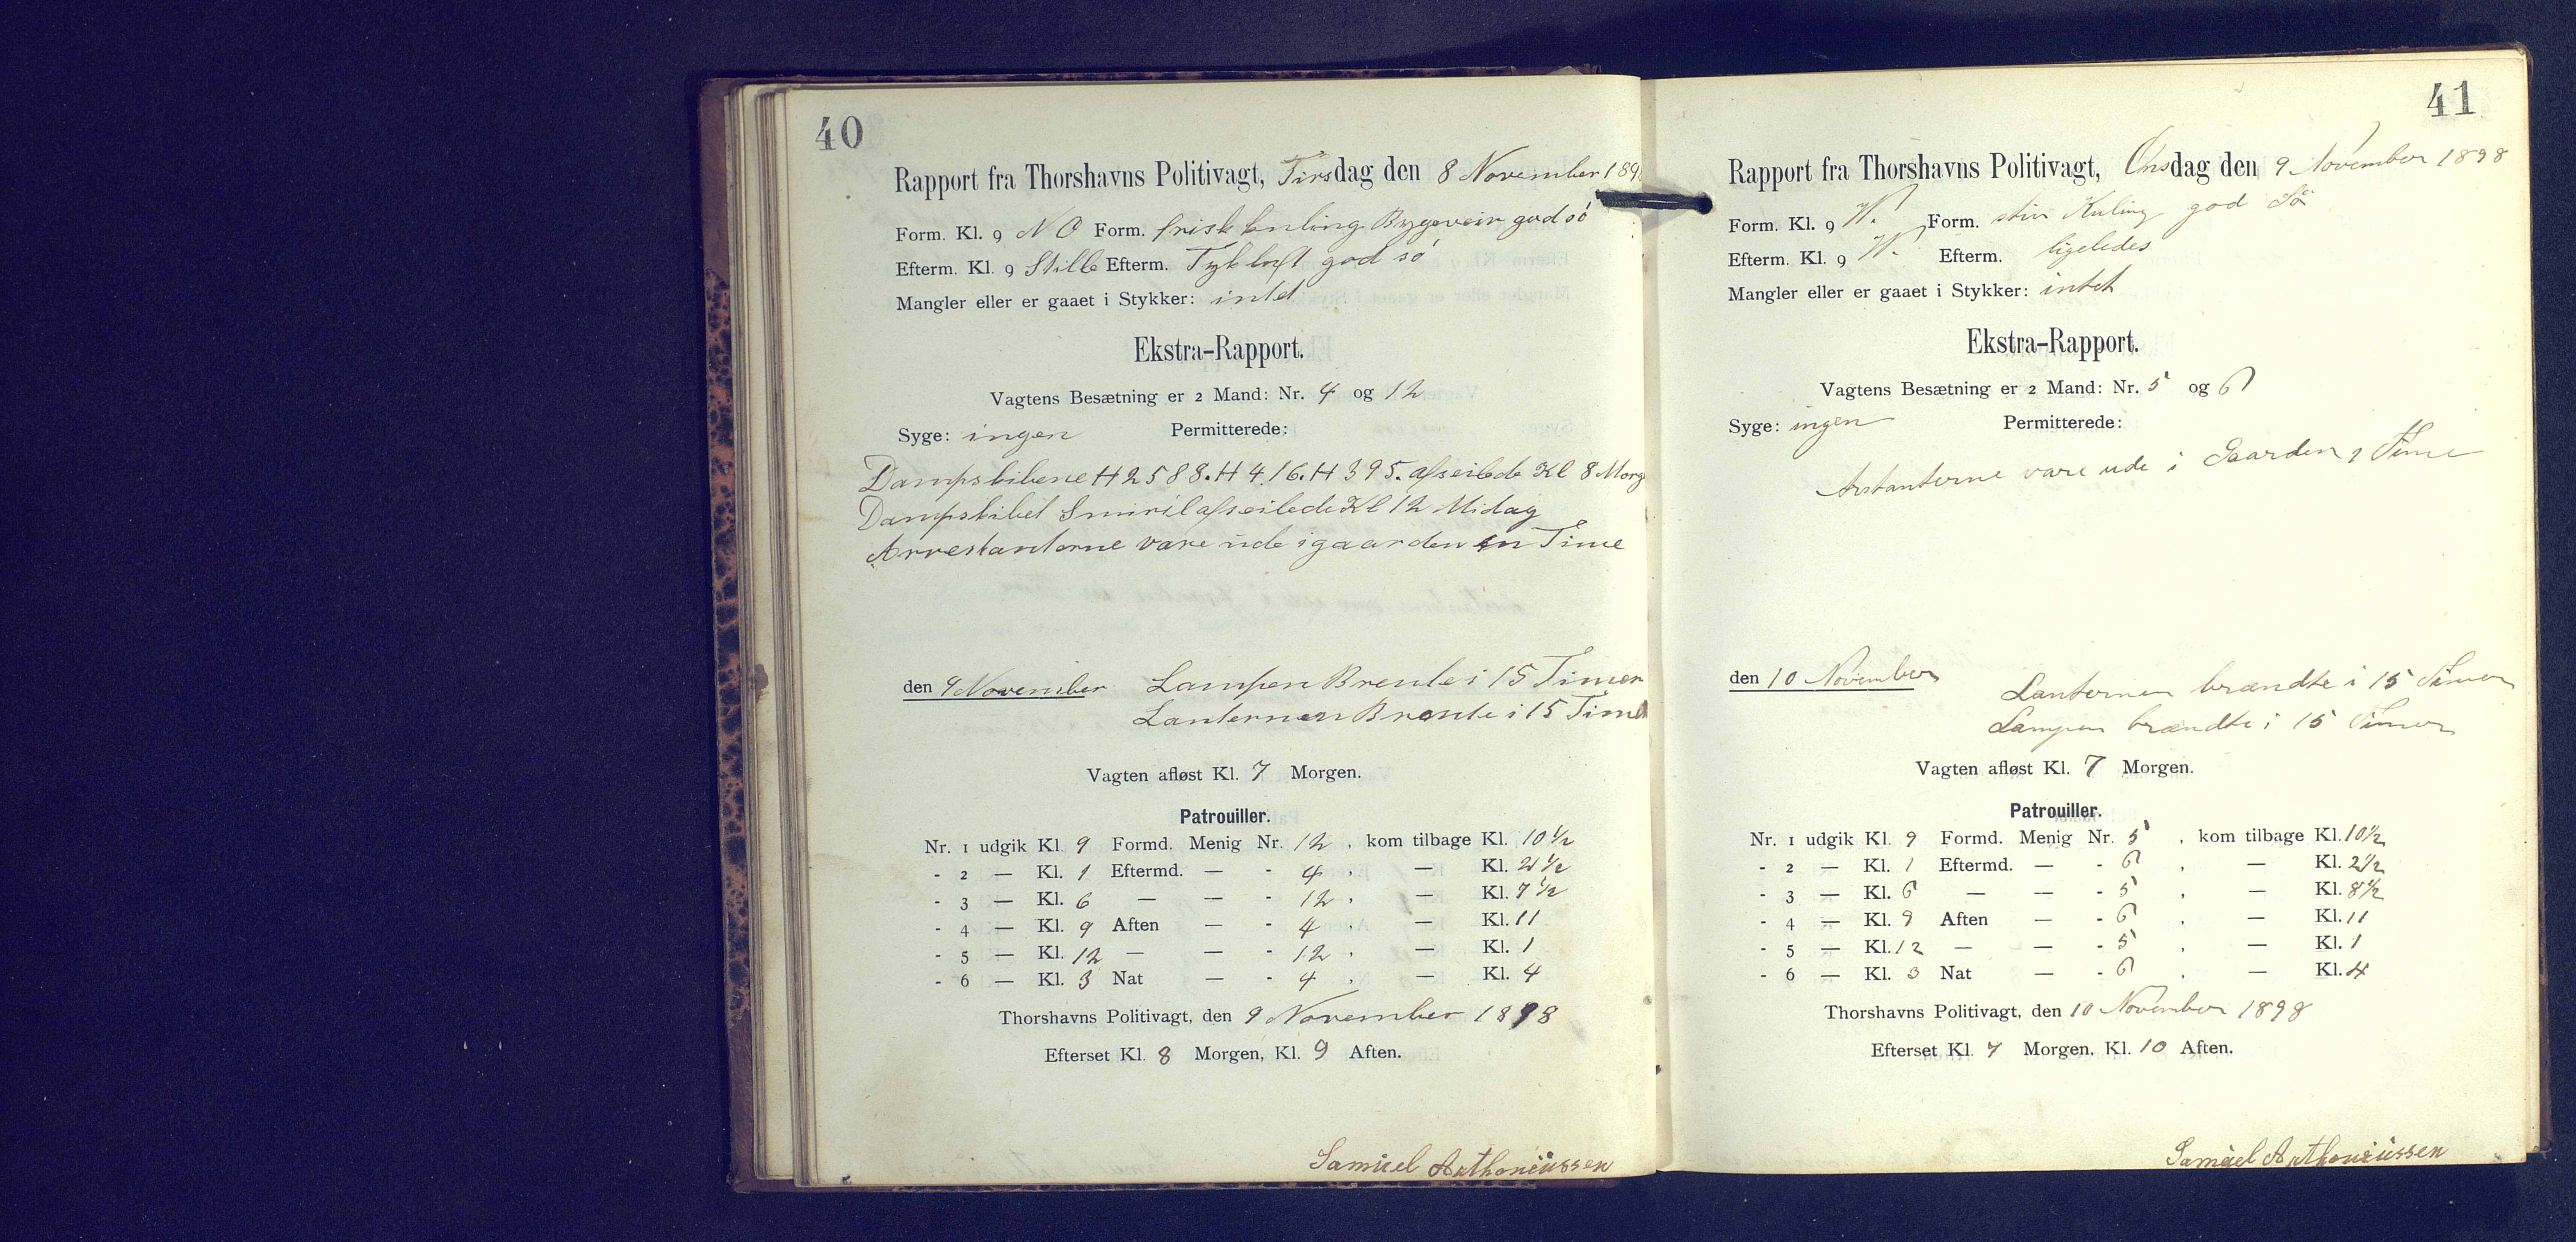 40
Rapport fra Thorshavns Politivagt, Tirsdag den 8 November 189
Form. Kl. 9 N O Form. frisk kuling Bygeveir god sö
Efterm. Kl. 9 Stille Efterm. Tykluft god sö
Mangler eller er gaaet i Stykker: intet
Ekstra-Rapport.
Vagtens Besætning er 2 Mand: Nr. 4 og 12
Syge: ingen Permitterede:
Dampskibene H 2588. H 416. H 395. afseilede Kl 8 Morg
Dampskibet Smiril afseilede Kl 12 Midag
Arrestanterne vare ude i gaarden en Time
den 9 November Lampen Brente i 15 Timer
Lanternen Brente i 15 Timer
Vagten afløst Kl. 7 Morgen.
Patrouiller.
Nr. 1 udgik Kl. 9 Formd. Menig Nr. 12 , kom tilbage Kl. 10 1/2
- 2 — Kl. 1 Eftermd. — - 4 , — Kl. 2 1/2
- 3 — Kl. 6 — — - 12 , — Kl. 7 1/2
- 4 — Kl. 9 Aften — - 4 , — Kl. 11
- 5 — Kl. 12 — — - 12 , — Kl. 1
- 6 — Kl. 3 Nat — - 4 , — Kl. 4
Thorshavns Politivagt, den 9 November 1898
Efterset Kl. 8 Morgen, Kl. 9 Aften.
Samuel Anthoniussen
41
Rapport fra Thorshavns Politivagt, Onsdag den 9 November 1898
Form. Kl. 9 V. Form. stiv Kuling god Sö
Efterm. Kl. 9 V. Efterm. ligeledes
Mangler eller er gaaet i Stykker: intet
Ekstra-Rapport.
Vagtens Besætning er 2 Mand: Nr. 5 og 6
Syge: ingen Permitterede:
Arstanterne vare ude i Gaarden 1 Time
den 10 November Lanternen brændte i 15 Timer
Lampen brændte i 15 Timer
Vagten afløst Kl. 7 Morgen.
Patrouiller.
Nr. 1 udgik Kl. 9 Formd. Menig Nr. 5 , kom tilbage Kl. 10 1/2
- 2 — Kl. 1 Eftermd. — - 6 , — Kl. 2 1/2
- 3 — Kl. 6 — — - 5 , — Kl. 8 1/2
- 4 — Kl. 9 Aften — - 6 , — Kl. 11
- 5 — Kl. 12 — — - 5 , — Kl. 1
- 6 — Kl. 3 Nat — - 6 , — Kl. 4
Thorshavns Politivagt, den 10 November 1898
Efterset Kl. 7 Morgen, Kl. 10 Aften.
Samuel Anthoniussen